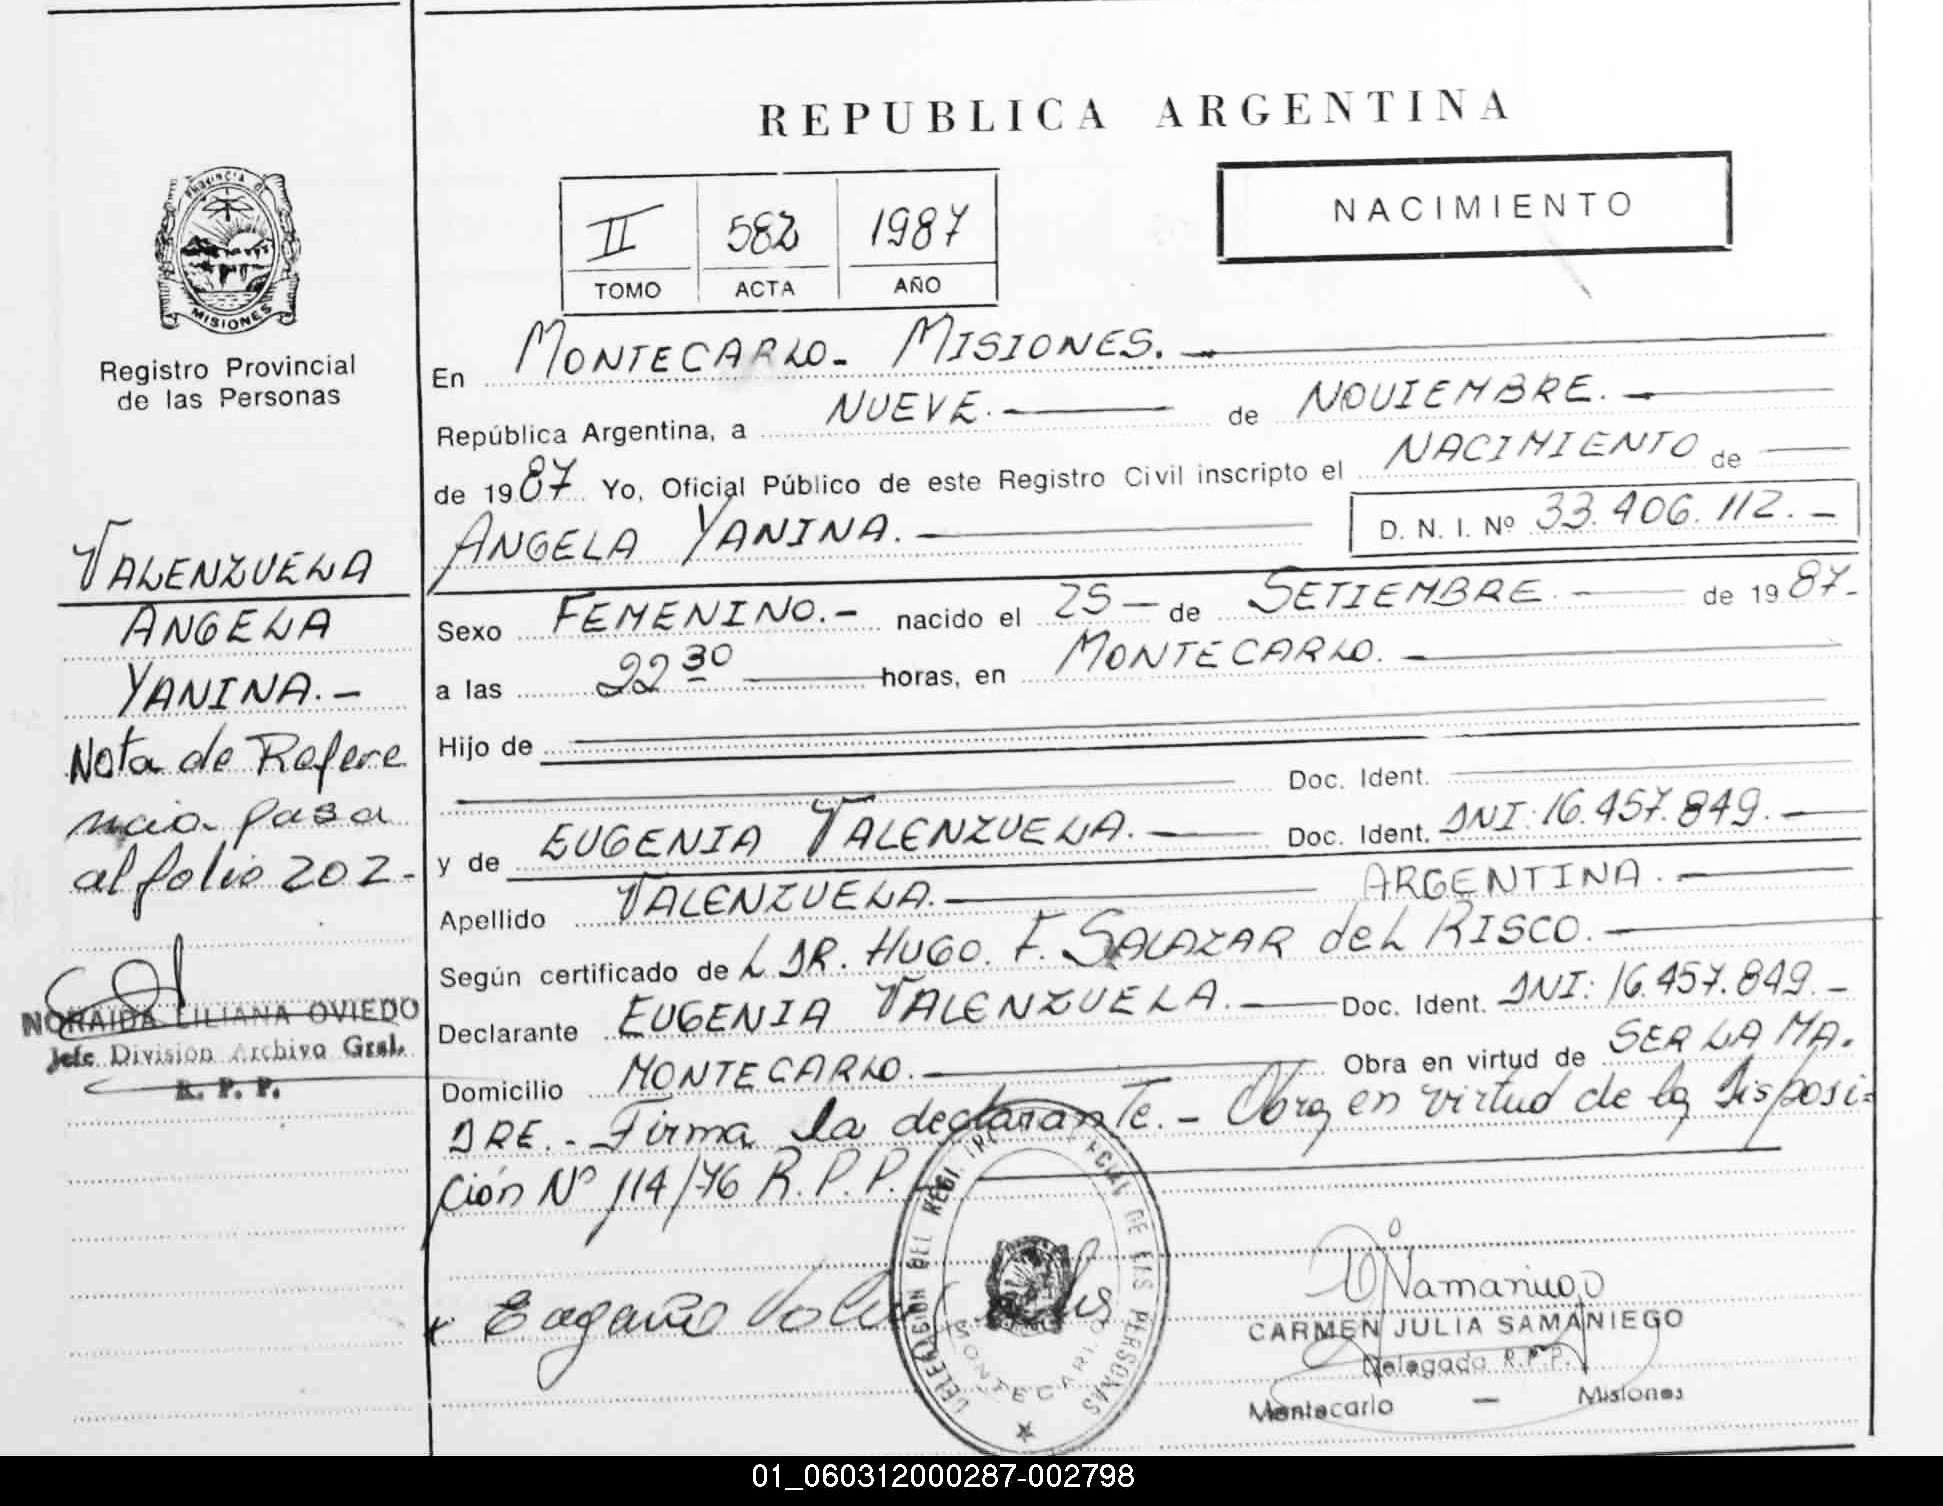 REPUBLICA ARGENTINA
NACIMIENTO
II 582 1987
TOMO ACTA AÑO
PROVINCIA DE
MISIONES
Registro Provincial
de las Personas
VALENZUELA
ANGELA
YANINA.-
Nota de Refere
ncia pasa
al folio 202-
NORAIDA LILIANA OVIEDO
Jefe División Archivo Gral.
R. P. P.
En MONTECARLO- MISIONES.
República Argentina, a NUEVE. de NOVIEMBRE.
de 1987 Yo, Oficial Público de este Registro Civil inscripto el NACIMIENTO de
ANGELA YANINA. D. N. I. Nº 33.406.112.-
Sexo FEMENINO.- nacido el 25- de SETIEMBRE. de 1987-
a las 22 30 horas, en MONTECARLO.
Hijo de
Doc. Ident.
y de EUGENIA VALENZUELA. Doc. Ident. DNI: 16.457.849.
Apellido VALENZUELA. ARGENTINA.
Según certificado de L DR. HUGO. F. SALAZAR del RISCO.
Declarante EUGENIA VALENZUELA. Doc. Ident. DNI: 16.457.849.-
Domicilio MONTECARLO. Obra en virtud de SER LA MA.
DRE.- Firma la declarante.- Obra en virtud de la Disposi-
ción Nº 114/76 R.P.P.
DELEGACION DEL DE LAS PERSONAS
MONTECARLO
CARMEN JULIA SAMANIEGO
Delegada R.P.P.
Montecarlo - Misiones
01_060312000287-002798